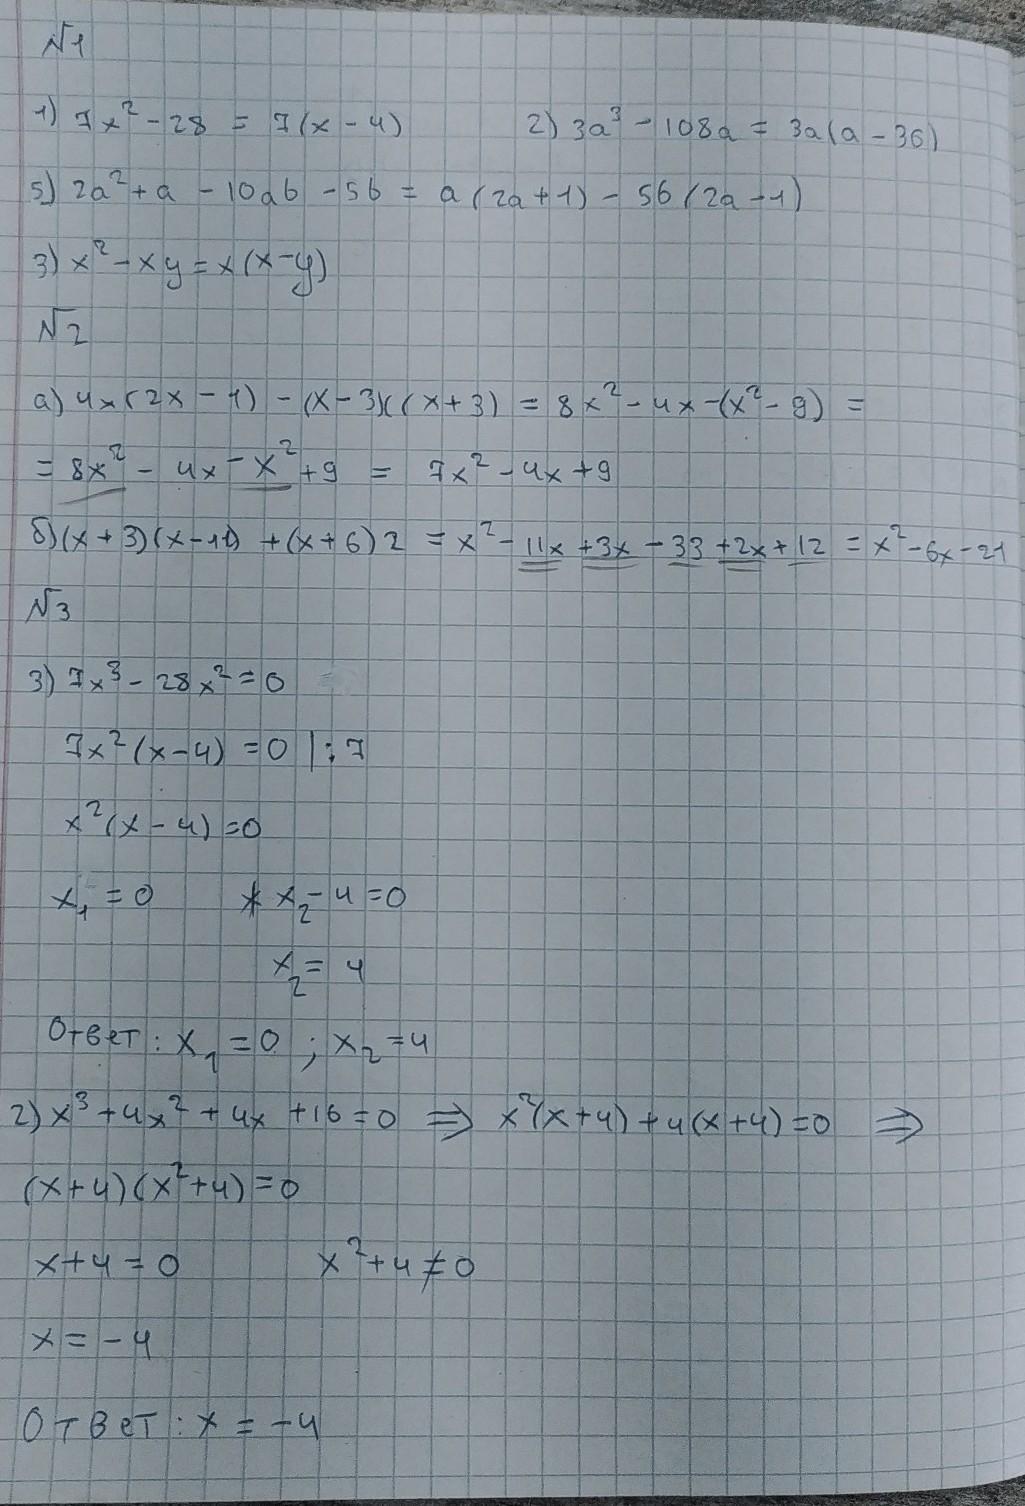 №1
1) 7x² - 28 = 7(x - 4) 2) 3a³ - 108a = 3a(a - 36)
5) 2a² + a - 10ab - 5b = a(2a + 1) - 5b(2a - 1)
3) x² - xy = x(x - y)
№2
а) 4x(2x - 1) - (x - 3)((x + 3) = 8x² - 4x - (x² - 9) =
= 8x² - 4x - x² + 9 = 7x² - 4x + 9
б) (x + 3)(x - 11) + (x + 6)2 = x² - 11x + 3x - 33 + 2x + 12 = x² - 6x - 21
№3
3) 7x³ - 28x² = 0
7x²(x - 4) = 0 | : 7
x²(x - 4) = 0
x₁ = 0 x₂ - 4 = 0
x₂ = 4
Ответ: x₁ = 0 ; x₂ = 4
2) x³ + 4x² + 4x + 16 = 0 ⇒ x²(x + 4) + 4(x + 4) = 0 ⇒
(x + 4)(x² + 4) = 0
x + 4 = 0 x² + 4 ≠ 0
x = - 4
Ответ: x = - 4